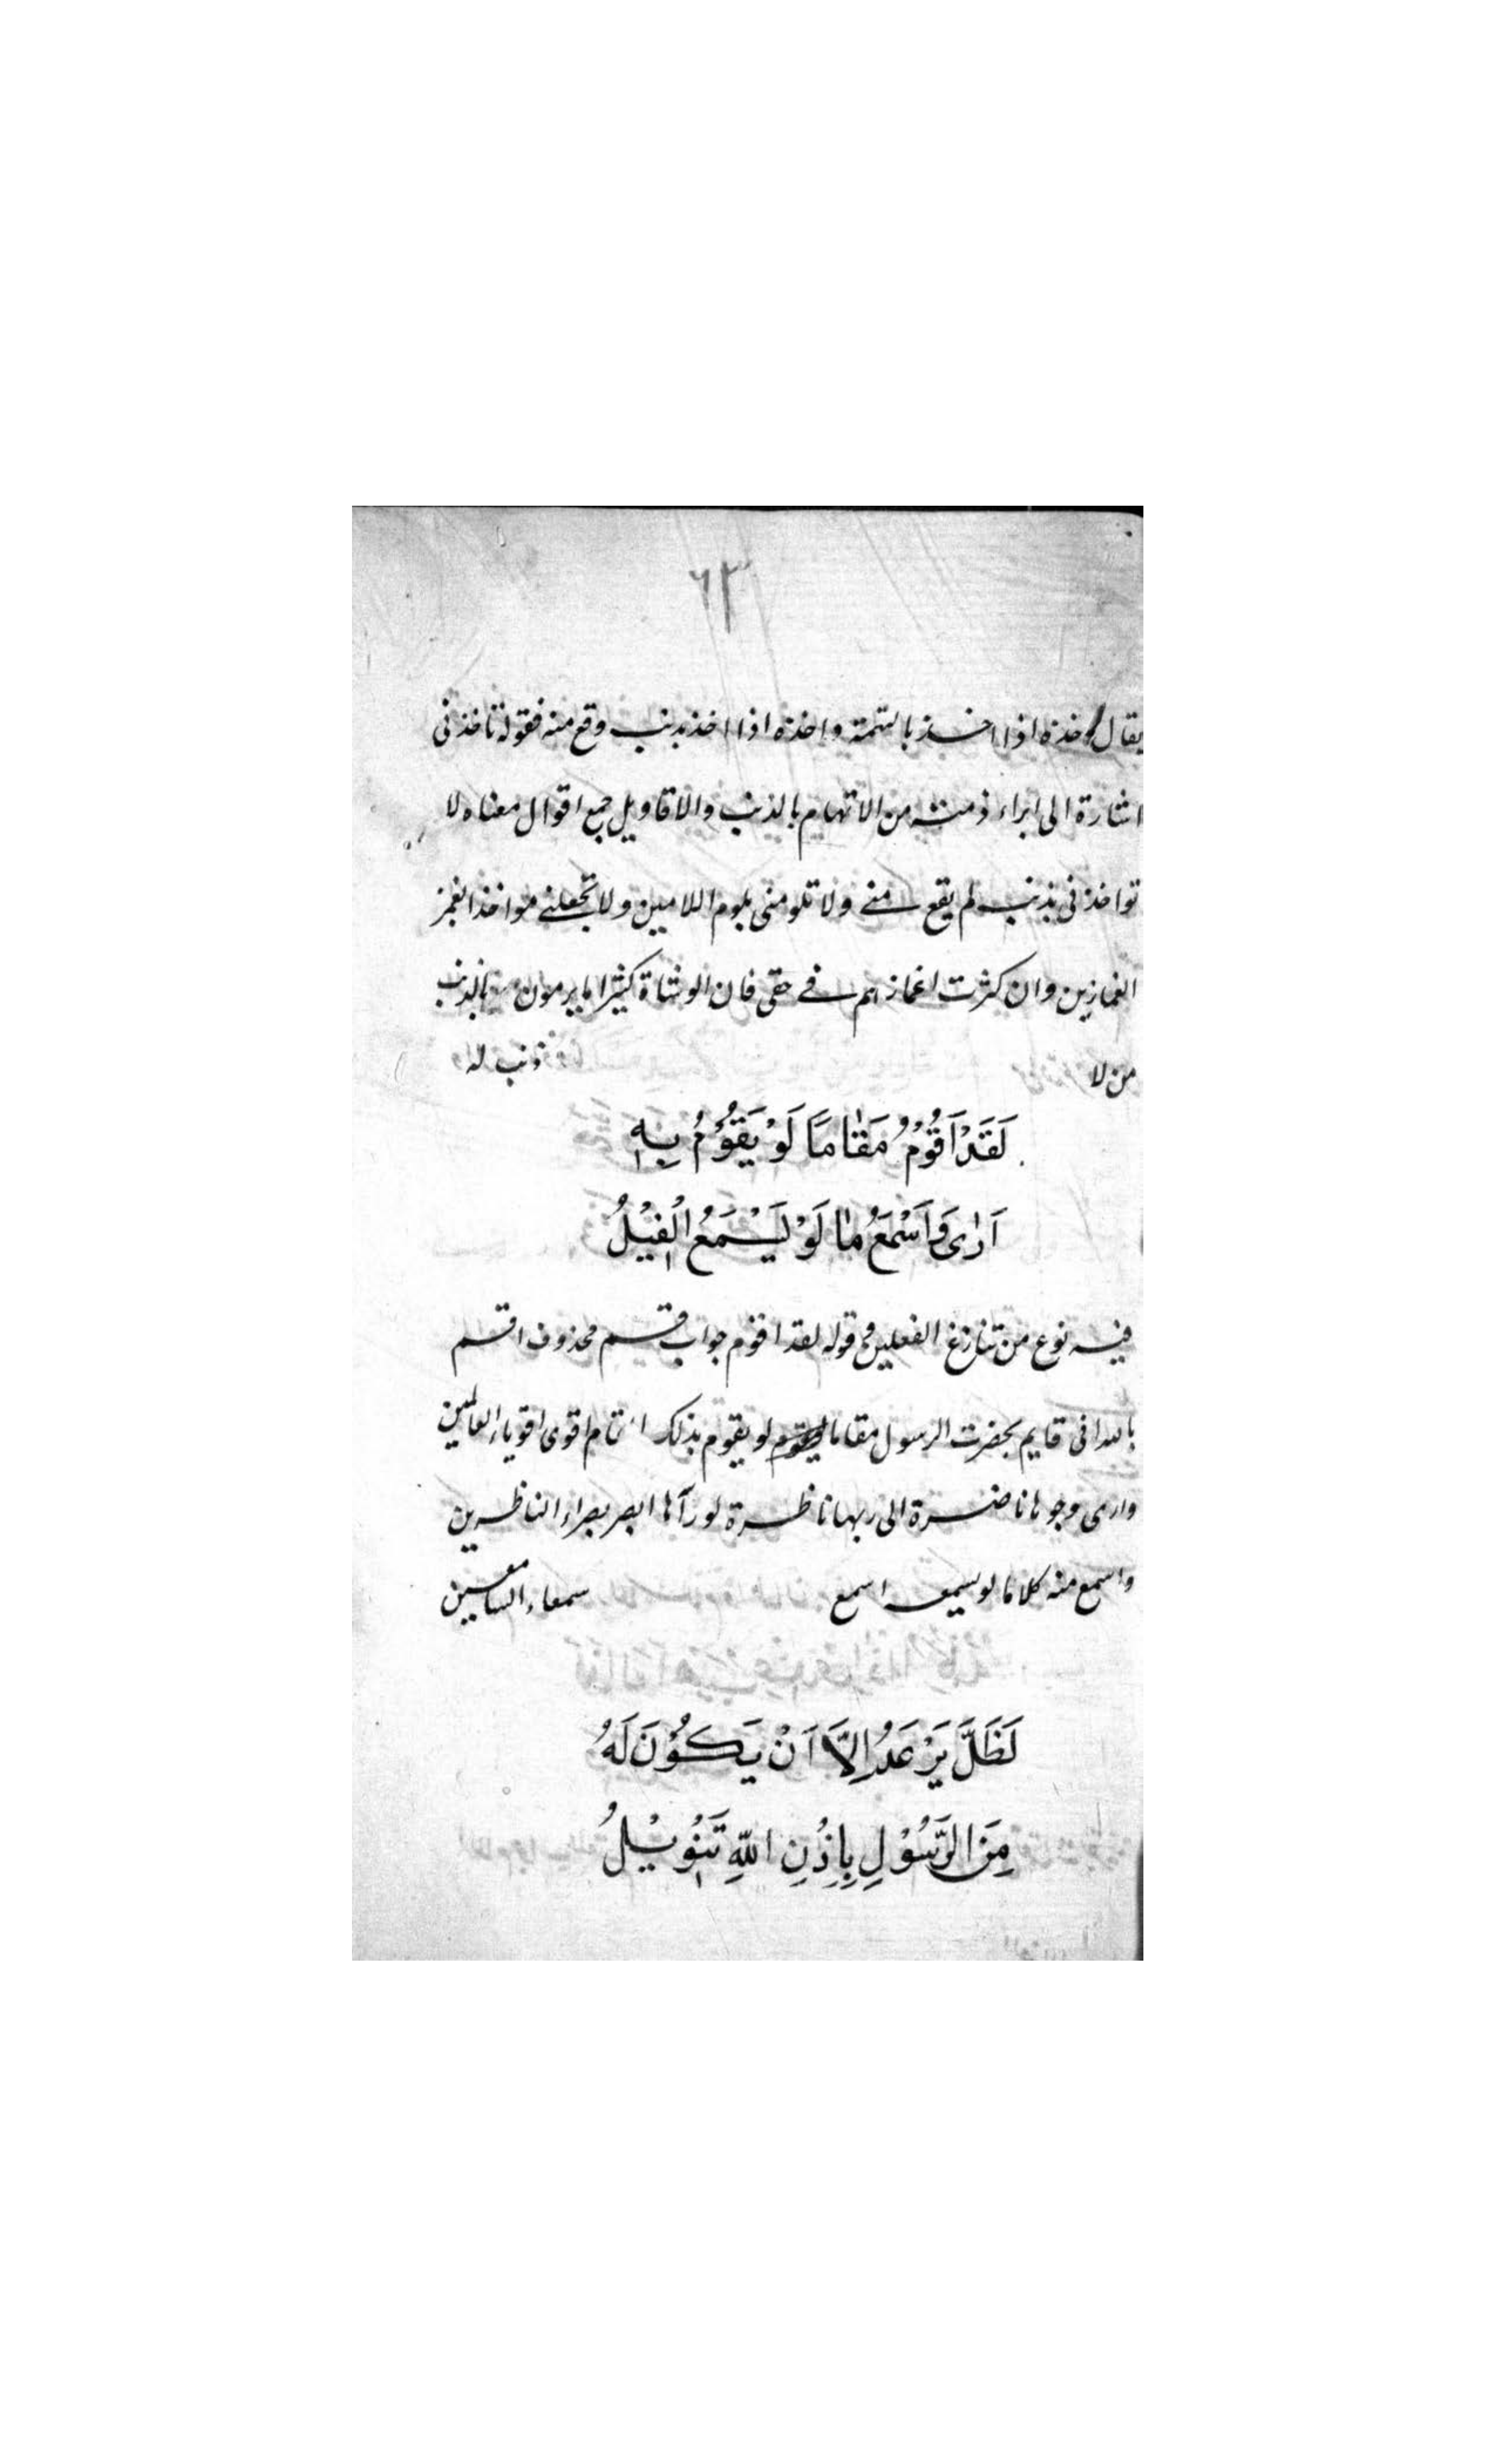 ٦٣
يقال اخذه اذا اخذ بالتهمة واخذه اذا اخذ بذنب وقع منه فقوله تاخذنى
اشارة الى ابراء ذمته من الاتهام بالذنب والاقاويل جمع اقوال معناه لا
تواخذنى بذنب لم يقع منى ولا تلومنى بلوم اللامين ولا تجعلنے مواخذا بغمز
الغمازين وان كثرت اغمازهم فے حقى فان الوشاة كثيرا ما يرمون بالذنب
من لا ذنب له
لَقَدْ اَقُوْمُ مَقَامًا لَوْ يَقُوْمُ بِهٖ
اَرٰى وَاَسْمَعُ مٰا لَوْ يَسْمَعُ الْفِيْلُ
فيه نوع من تنازع الفعلين وقوله لقد اقوم جواب قسم محذوف اقسم
بالله انى قايم بحضرت الرسول مقاما لو يقوم بذلك اقوى اقوياء العالمين
وارى وجوها ناضرة الى ربها ناظرة لو رآها ابصر بصراء الناظرين
واسمع منه كلاما لو يسمعه اسمع سمعاء السامعين
لَظَلَّ يَرْعَدُ اِلَّا اَنْ يَكُوْنَ لَهُ
مِنَ الرَّسُوْلِ بِاِذْنِ اللّٰهِ تَنْوِيْلُ